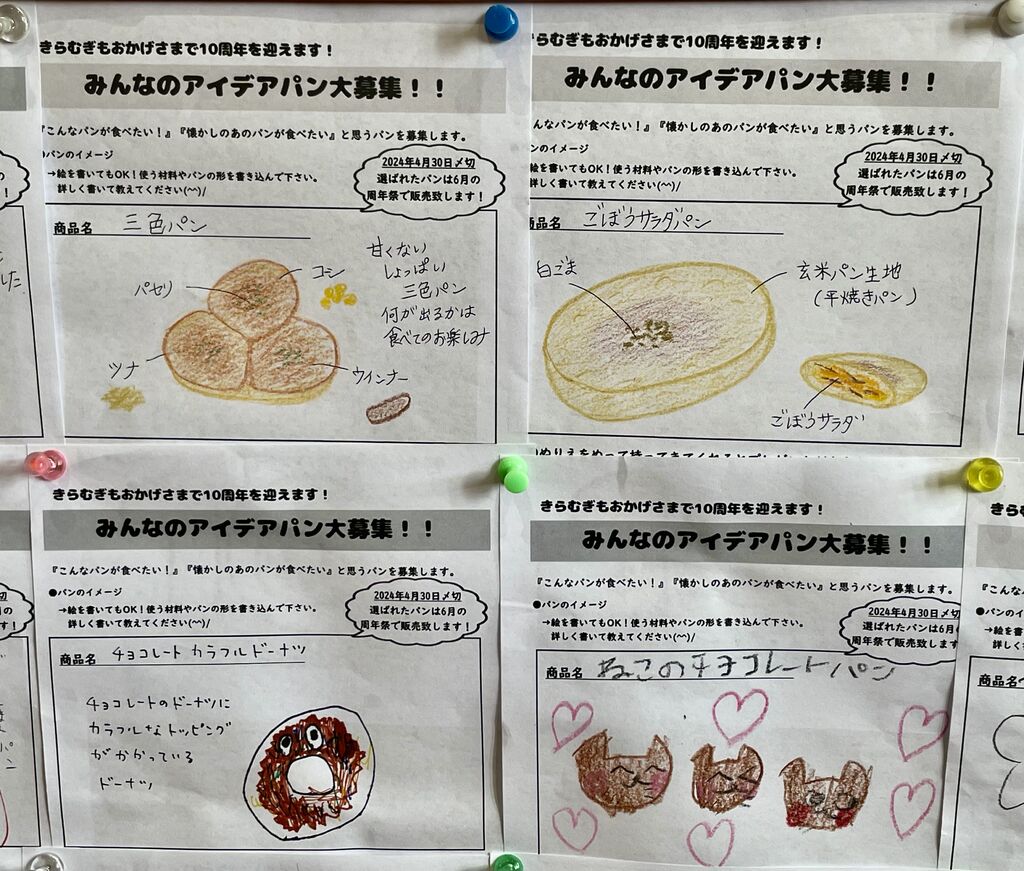 きらむぎもおかげさまで10周年を迎えます！
みんなのアイデアパン大募集！！
『こんなパンが食べたい！』『懐かしのあのパンが食べたい』と思うパンを募集します。
パンのイメージ
→絵を書いてもOK！使う材料やパンの形を書き込んで下さい。
詳しく書いて教えてください(^^)/
2024年4月30日〆切
選ばれたパンは6月の
周年祭で販売致します！
商品名 三色パン
甘くない
しょっぱい
三色パン
何が出るかは
食べてのお楽しみ
コーン
パセリ
ツナ
ウインナー
らむぎもおかげさまで10周年を迎えます！
みんなのアイデアパン大募集！！
んなパンが食べたい！』『懐かしのあのパンが食べたい』と思うパンを募集します。
ンのイメージ
絵を書いてもOK！使う材料やパンの形を書き込んで下さい。
詳しく書いて教えてください(^^)/
2024年4月30日〆切
選ばれたパンは6月の
周年祭で販売致します！
品名 ごぼうサラダパン
白ごま
玄米パン生地
(平焼きパン)
ごぼうサラダ
きらむぎもおかげさまで10周年を迎えます！
みんなのアイデアパン大募集！！
『こんなパンが食べたい！』『懐かしのあのパンが食べたい』と思うパンを募集します。
●パンのイメージ
→絵を書いてもOK！使う材料やパンの形を書き込んで下さい。
詳しく書いて教えてください(^^)/
2024年4月30日〆切
選ばれたパンは6月の
周年祭で販売致します！
商品名 チョコレートカラフルドーナツ
チョコレートのドーナツに
カラフルなトッピング
がかかっている
ドーナツ
きらむぎもおかげさまで10周年を迎えます！
みんなのアイデアパン大募集！！
『こんなパンが食べたい！』『懐かしのあのパンが食べたい』と思うパンを募集します。
●パンのイメージ
→絵を書いてもOK！使う材料やパンの形を書き込んで下さい。
詳しく書いて教えてください(^^)/
2024年4月30日〆切
選ばれたパンは6月
周年祭で販売致します
商品名 ねこのチョコレートパン